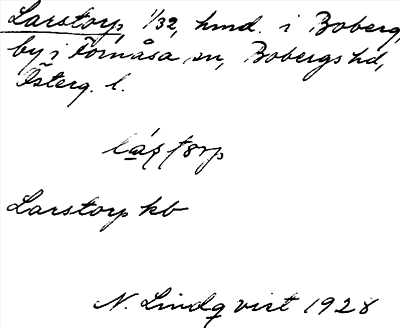 Larstorp, 1/32, hmd. i Boberg,
by i Fornåsa sn, Bobergs hd,
Österg. l.
lástorp
Larstorp kb
N. Lindqvist 1928